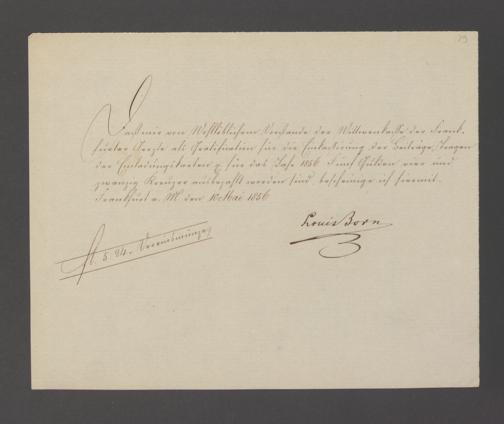 29
Daß mir von Wohllöblichem Vorstande der Wittwenkasse der Frank-
furter Aerzte als Gratification für die Einkassirung der Beiträge, Tragen
der Einladungskarten p. für das Jahr 1856 Fünf Gulden vier und
zwanzig Kreuzer ausbezahlt worden sind bescheinige ich hiermit.
Frankfurt a. M den 10 Mai 1856
Louis Born
fl. 5. 24. Vereinsmünze